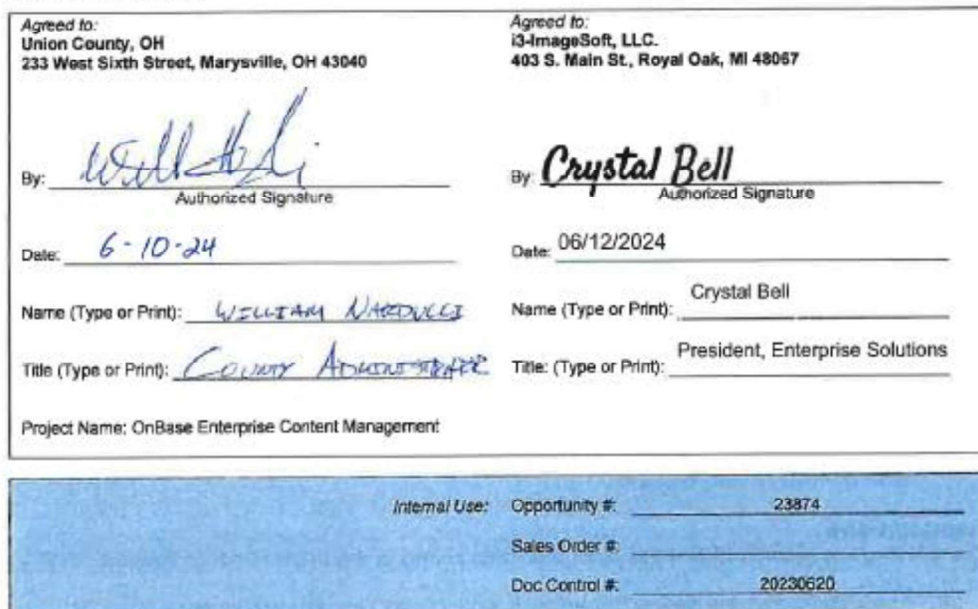 Agreed to:
Union County, OH
233 West Sixth Street, Marysville, OH 43040
By:
Authorized Signature
Date: 6-10-24
Name (Type or Print): WILLIAM NARDUCCI
Title (Type or Print): COUNTY ADMINISTRATOR
Project Name: OnBase Enterprise Content Management
Agreed to:
i3-ImageSoft, LLC.
403 S. Main St., Royal Oak, MI 48067
By: Crystal Bell
Authorized Signature
Date: 06/12/2024
Name (Type or Print): Crystal Bell
Title: (Type or Print): President, Enterprise Solutions
Internal Use: Opportunity #: 23874
Sales Order #:
Doc Control #: 20230620